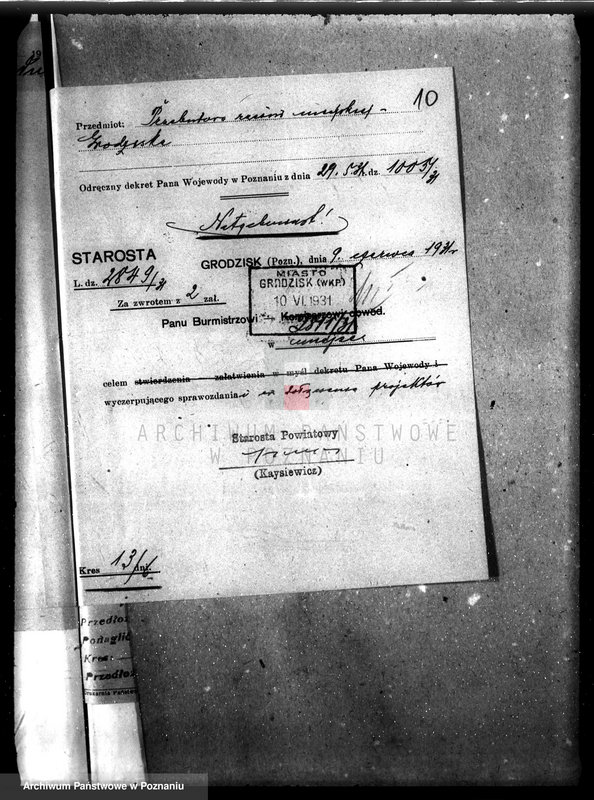 10
Przedmiot:
Grodziska
Odręczny dekret Pana Wojewody w Poznaniu z dnia 29.5.31 l. dz. 1003/31
Natychmiast!
STAROSTA
L. dz. 2849/31
GRODZISK (Pozn.), dnia 9. czerwca 1931 r
Za zwrotem z 2 zał.
MIASTO
GRODZISK (WKP.)
10 VI. 1931
2811/31
Panu Burmistrzowi – Komisarzowi obwod.
w miejscu
celem stwierdzenia załatwienia w myśl dekretu Pana Wojewody i
wyczerpującego sprawozdania i projektów
Starosta Powiatowy
(Kaysiewicz)
Kres 13/6 dni.
Przedłoż
Ponaglić
Kres:
Przedłoż
Drukarnia Państwow
ARCHIWUM PAŃSTWOWE
W POZNANIU
Archiwum Państwowe w Poznaniu